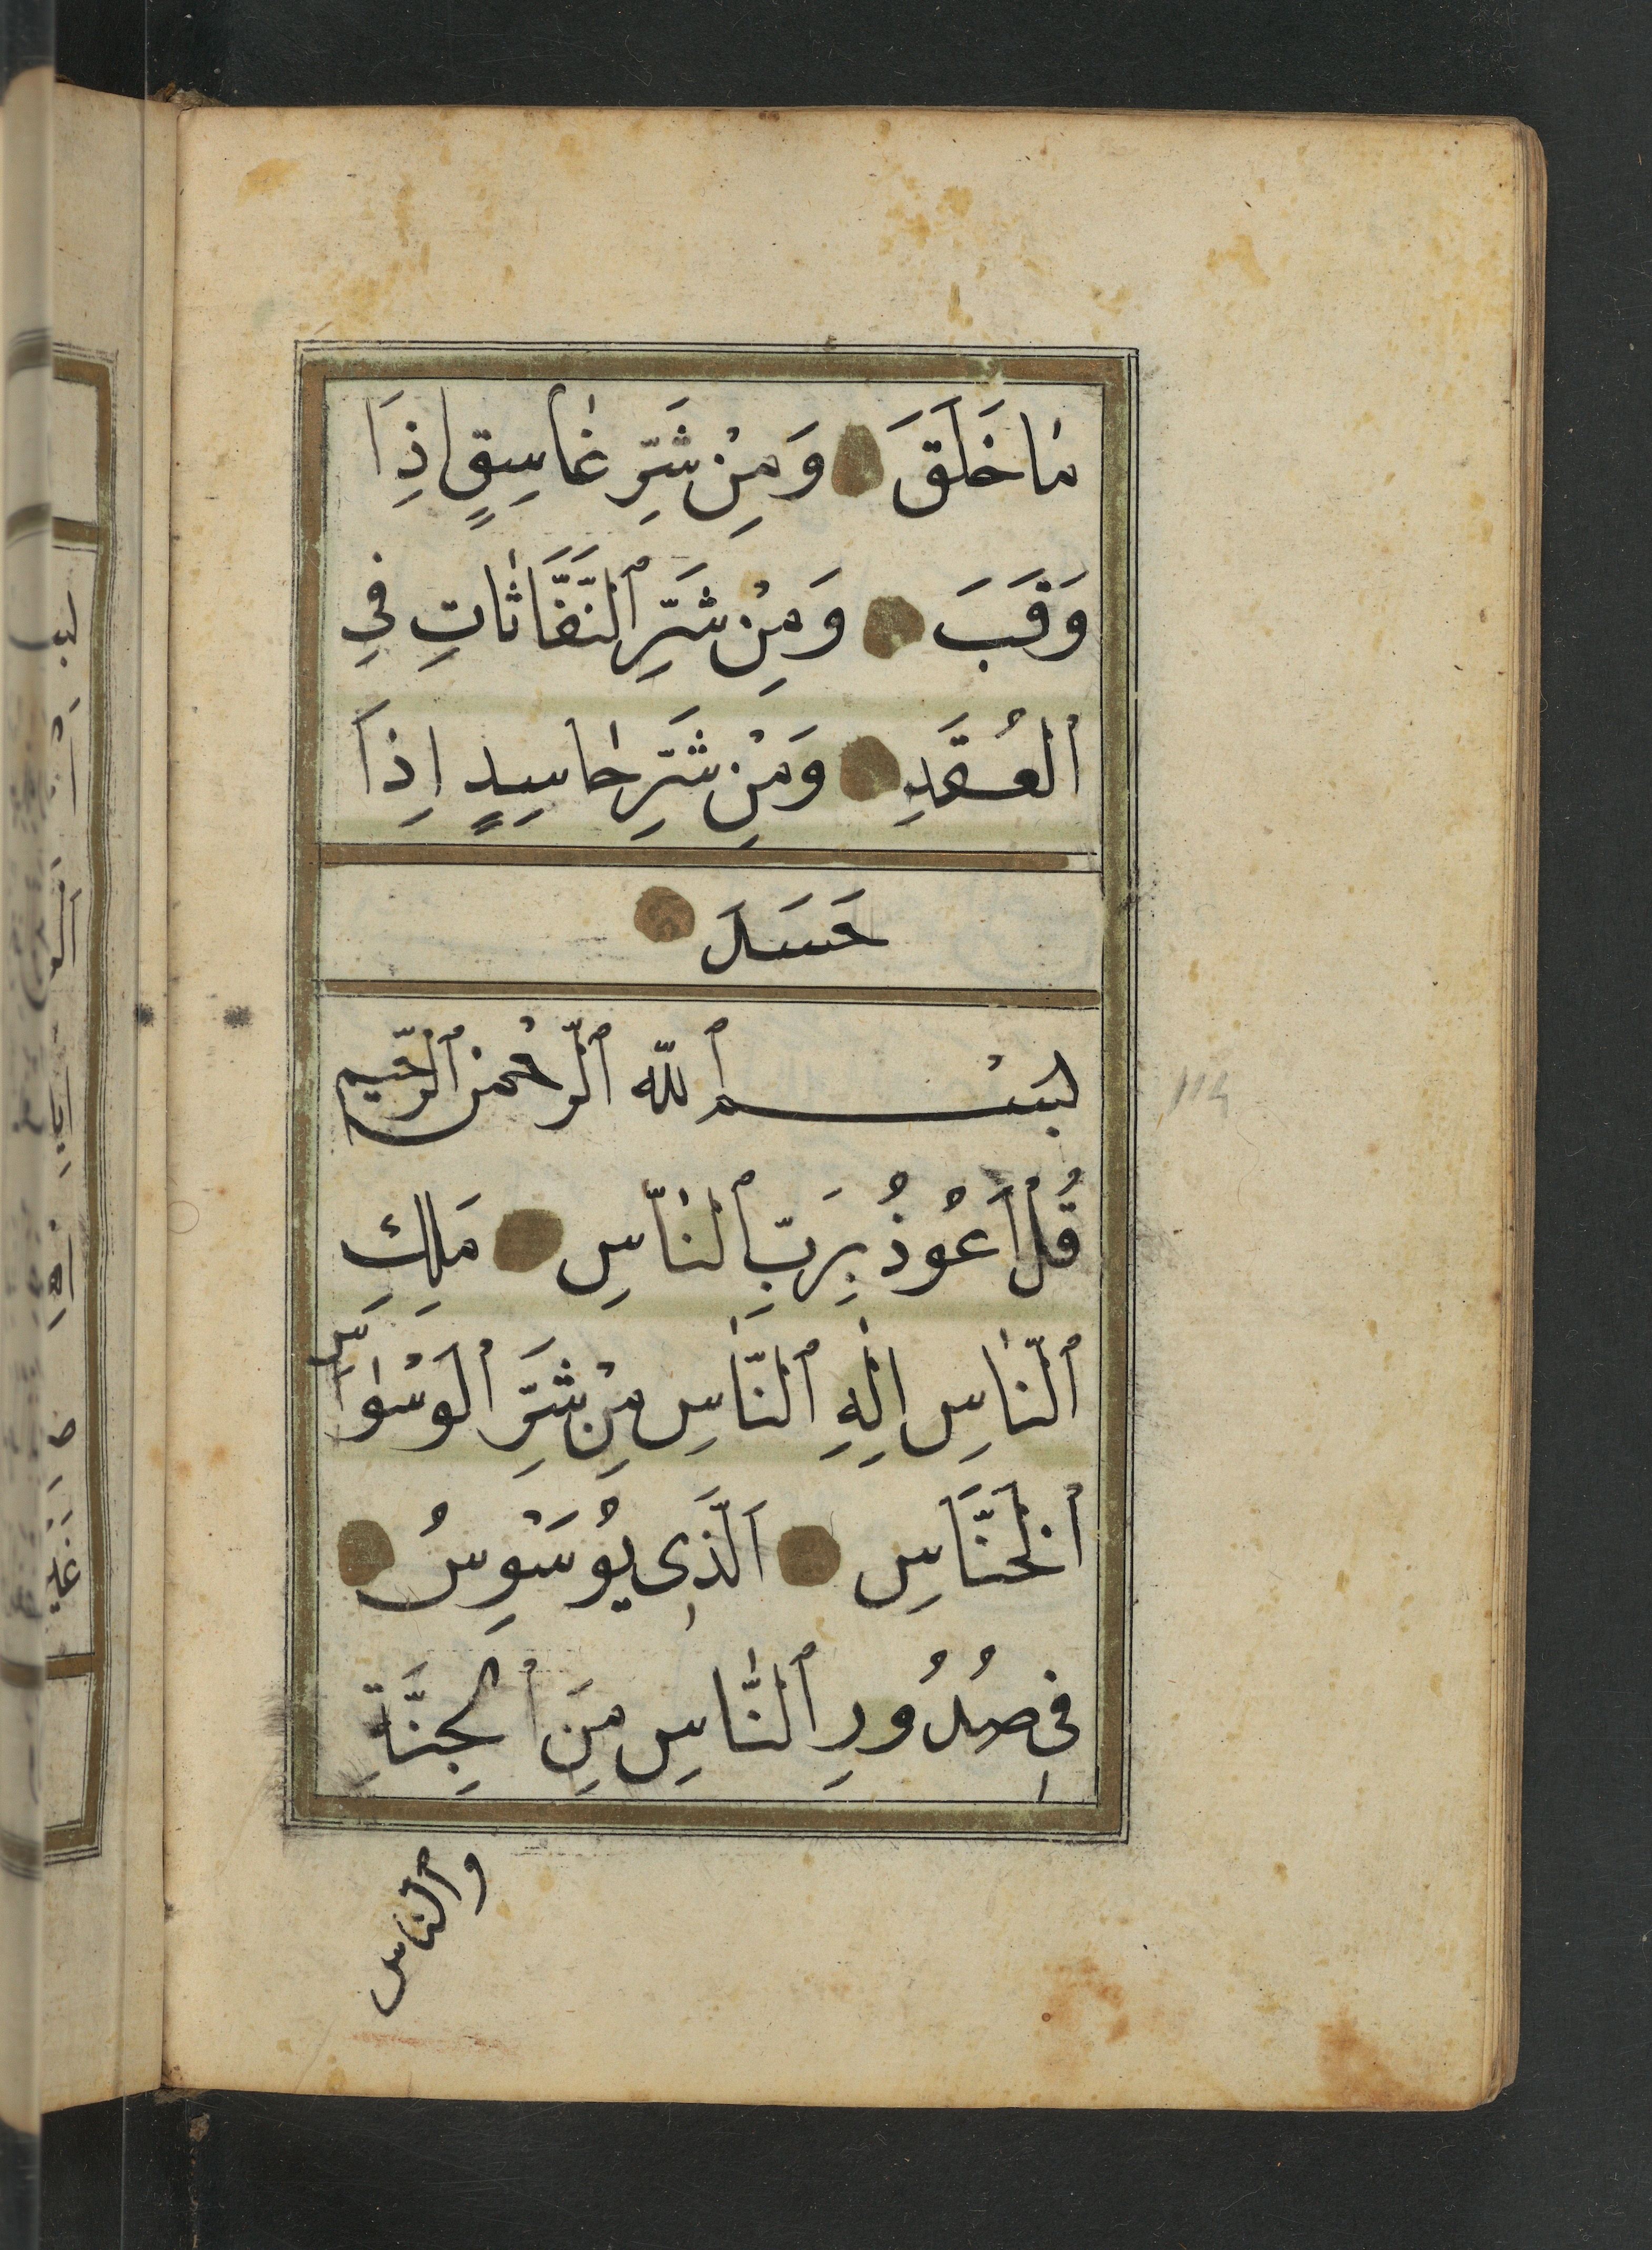 مٰا خَلَقَ وَ مِنْ شَرِّ غٰاسِقٍ اِذَا
وَقَبَ وَ مِنْ شَرِّ ٱلنَّفَّاثٰاتِ فِي
ٱلْعُقَدِ وَ مِنْ شَرِّ حٰاسِدٍ اِذَا
حَسَدَ
بِسْمِ ٱللّٰه ٱلرَّحْمن ٱلرَّحيم
قُلْ اَعُوذُ بِرَبِّ ٱلنّٰاسِ مَلِكِ
ٱلنّٰاسِ اِلٰهِ ٱلنّٰاسِ مِنْ شَرِّ ٱلْوَسْوٰاسِ
ٱلْخَنَّاسِ اَلَّذِى يُوَسْوِسُ
فِى صُدُورِ ٱلنّٰاسِ مِنَ ٱلْجِنَّةِ
و ٱلناس
114